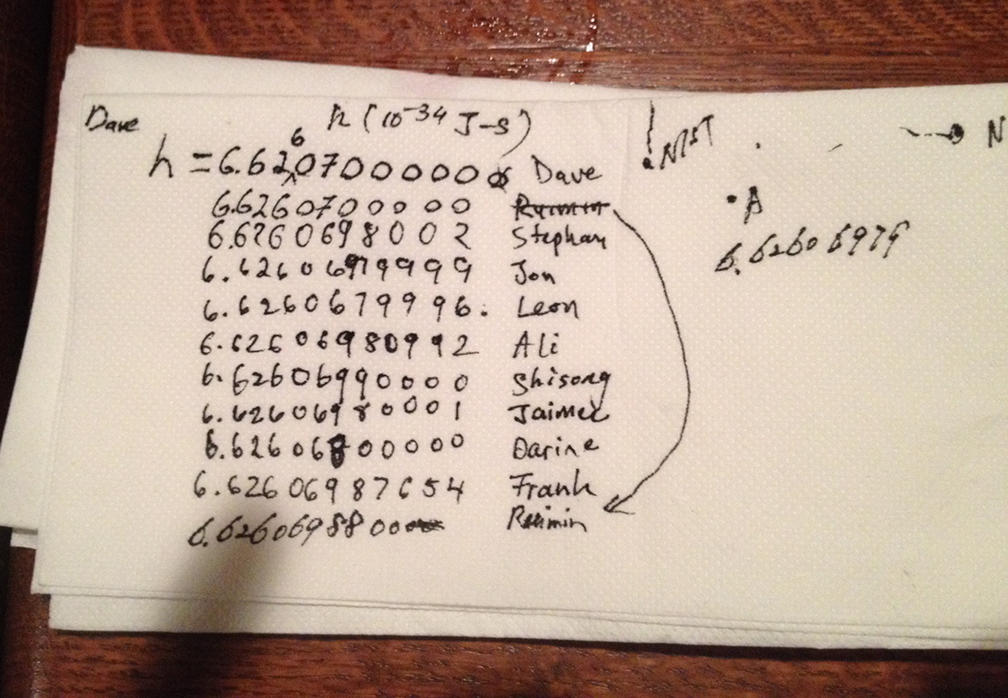 Dave
h (10-34 J-S)
h = 6.626070000000 Dave
6.6260700000 Ruimin
6.6260698002 Stephan
6.62606979999 Jon
6.6260679996. Leon
6.62606980992 Ali
6.62606990000 Shisong
6.62606980001 Jaimee
6.62606800000 Darine
6.62606987654 Frank
6.6260698800 Ruimin
NIST
A
6.62606979
N